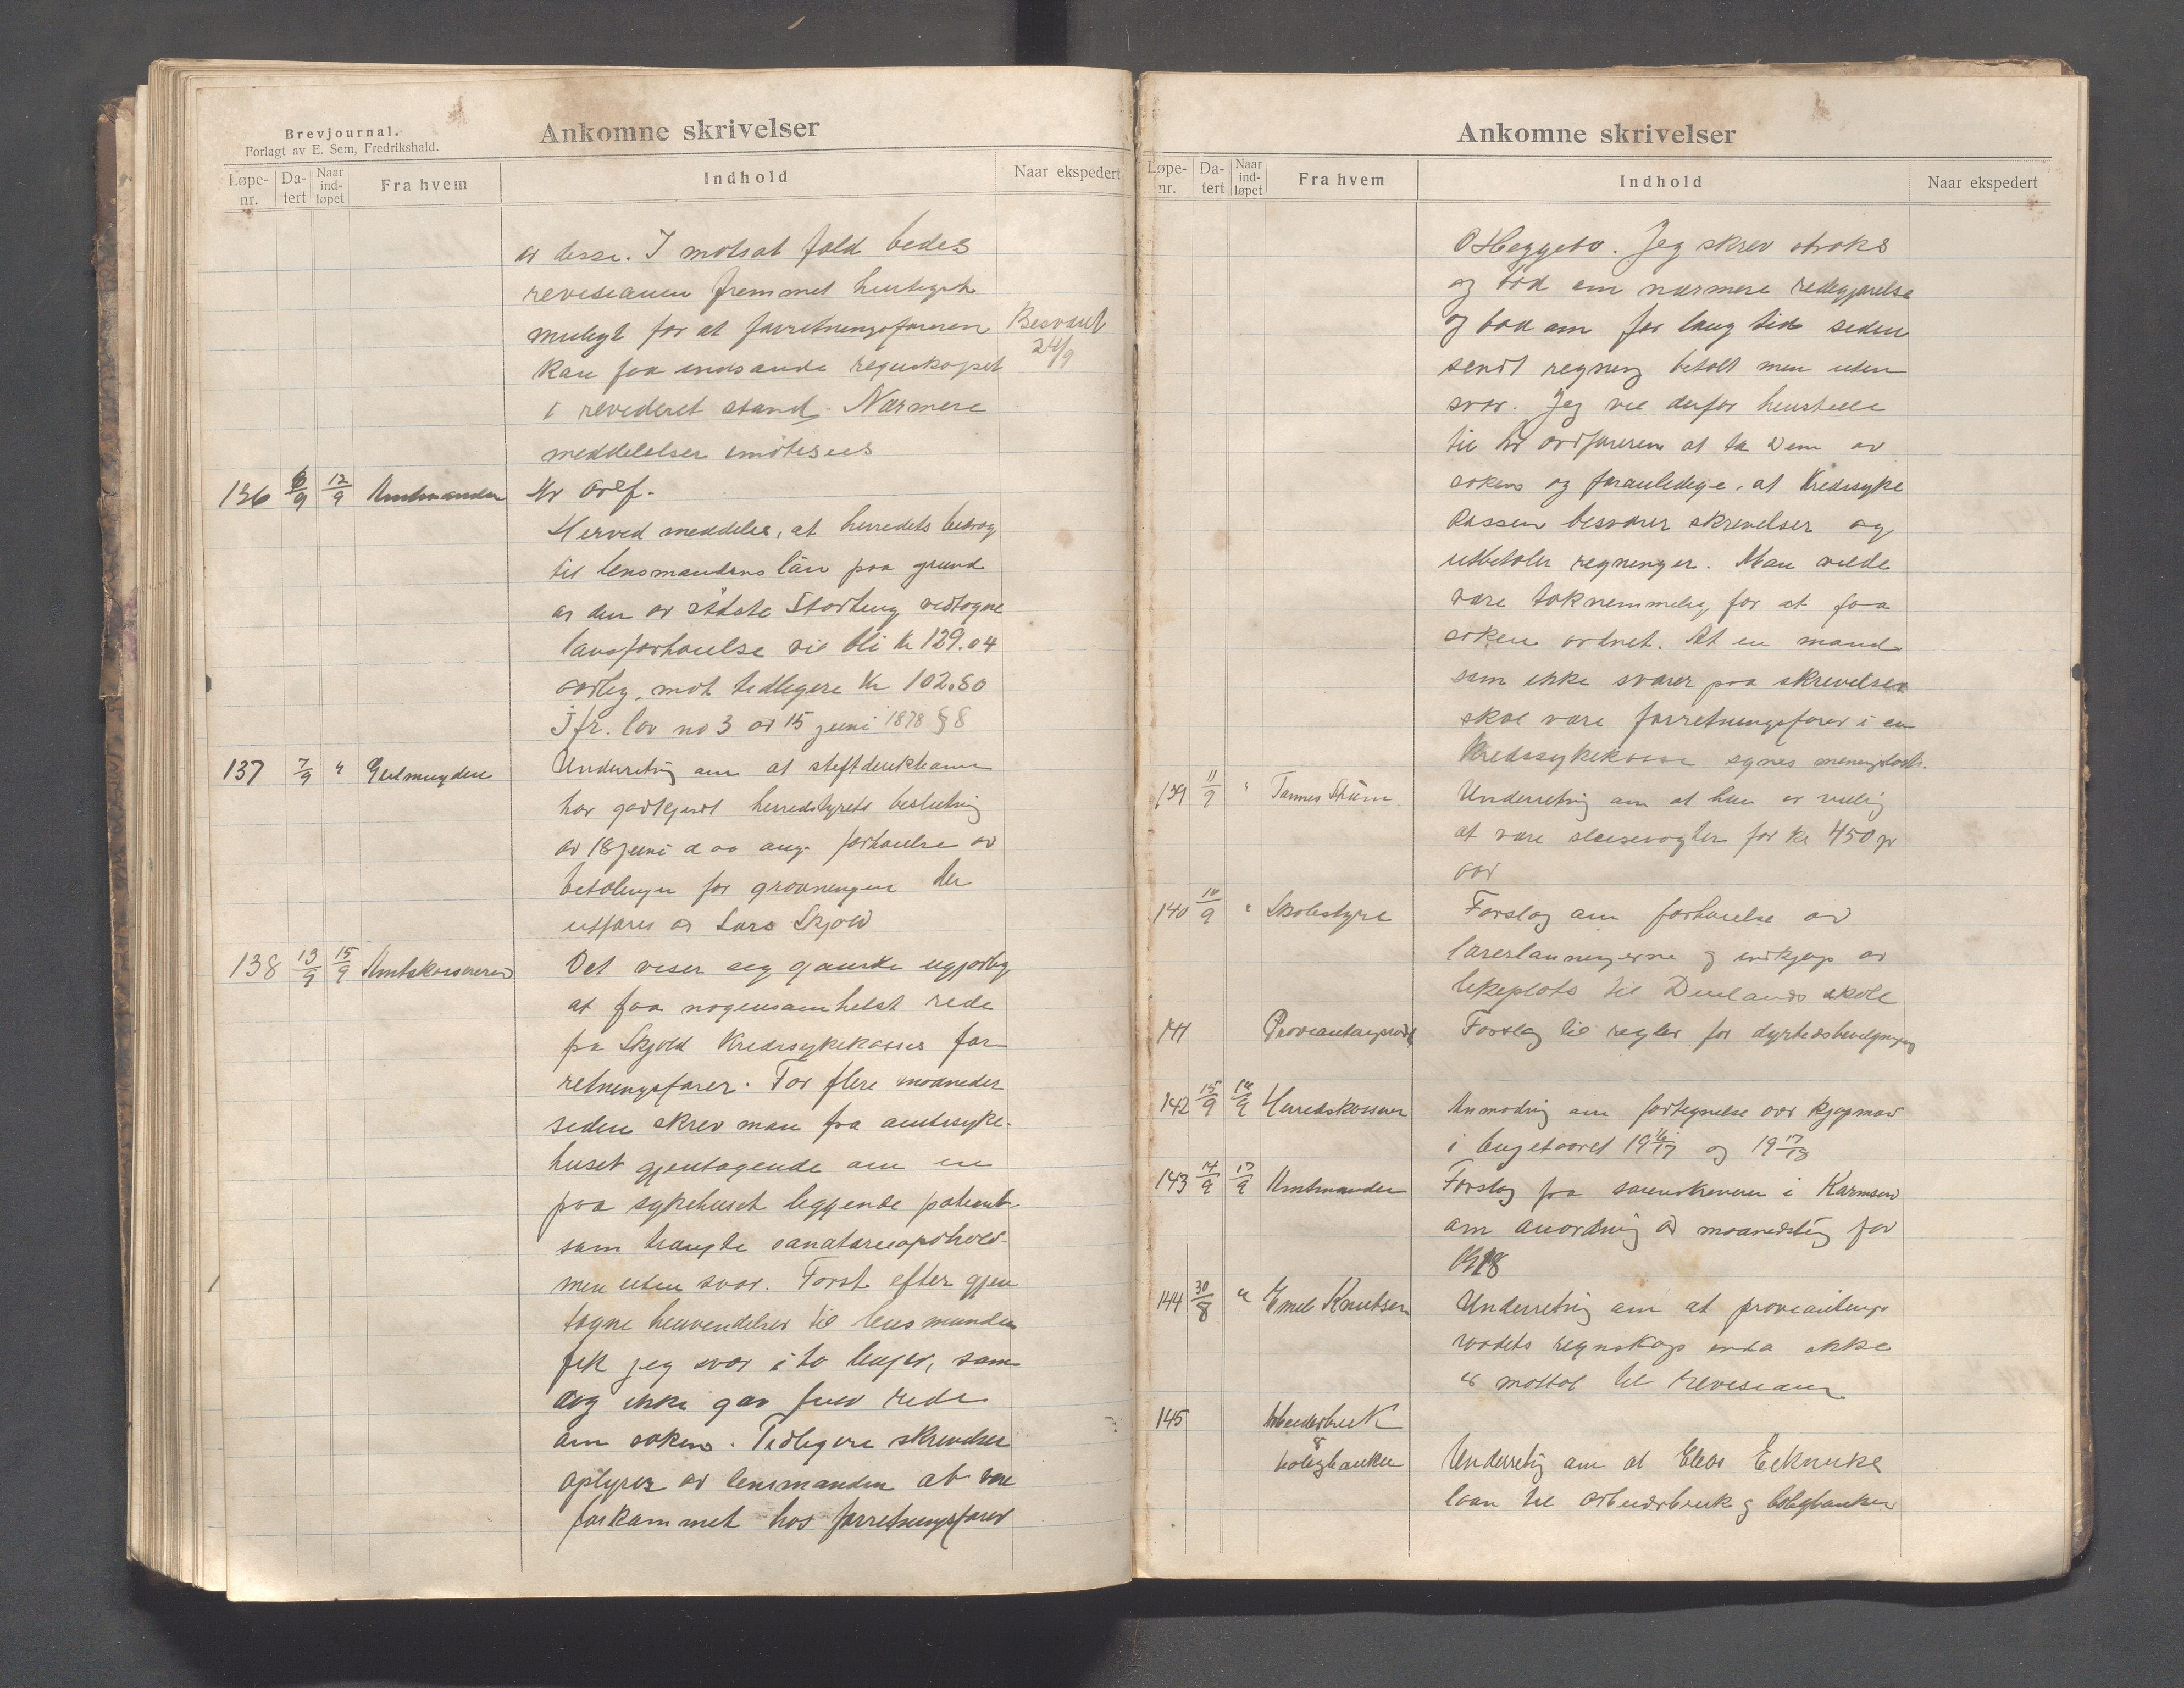 Brevjournal.
Forlagt av E. Sem, Fredrikshald.
Ankomne skrivelser
Løpe-nr. Da-tert Naar ind-løpet Fra hvem Indhold Naar ekspedert
av disse. I motsat fald bedes
revisionen fremmet hurtigst
muligt for at forretningsføreren Besvart
kan faa indsende regnskapet 24/9
i revideret stand. Nærmere
meddelelser imøtesees
136 6/9 12/9 Amtmanden Hr Ordf.
Herved meddeles, at herredets bidrag
til lensmandens løn paa grund
av den av sidste Storting vedtagne
lønsforhøielse vil bli kr 129.04
aarlig, mot tidligere kr 102.80
Jfr. lov no 3 av 15 juni 1878 § 8
137 7/9 " Gjelmuyden Underretning om at stiftdirektionen
har godkjendt herredstyrets beslutning
av 18 juni d aa ang. forhøielse av
betalingen for gravningen der
utføres av Lars Skjold
138 13/9 15/9 Amtskassereren Det viser sig ganske ugjørlig
at faa nogensomhelst rede
fra Skjold Kredssykekasses for
retningsfører. For flere maaneder
siden skrev man fra amtssyke-
huset gjentagende om en
paa sykehuset liggende patient
som trængte sanatorieophold
men uten svar. Først efter gjen
tagne henvendelser til lensmanden
fik jeg svar i to linjer, som
dog ikke gav fuld rede
om saken. Tidligere skrivelser
oplyses av lensmanden at være
forkommet hos forretningsfører
Ankomne skrivelser
Løpe-nr. Da-tert Naar ind-løpet Fra hvem Indhold Naar ekspedert
O Heggebø. Jeg skrev straks
og bad om nærmere redegjørelse
og bad om for lang tid siden
sendt regning betalt men uten
svar. Jeg vil derfor henstille
til hr ordføreren at ta Dem av
saken og foranledige, at Kredssyke
kassen besvarer skrivelser og
utbetaler regninger. Man vilde
være taknemmelig for at faa
saken ordnet. At en mand
som ikke svarer paa skrivelser
skal være forretningsfører i en
Kredssykekasse synes meningsløst.
139 11/9 " Tønnes Underretning om at han er villig
at være slusevogter for kr 450 pr
aar
140 10/9 " Skolestyre Forslag om forhøielse av
lærerlønningerne og indkjøp av
lekeplads til skole
141 Provianteringsraadet Forslag til regler for dyrtidsbevilgning
142 15/9 16/9 Herredskasserer Anmodning om fortegnelse over kjøpmænd
i budgetaaret 19 16/17 og 19 17/18
143 14/9 17/9 Amtmanden Forslag fra sorenskriveren i Karmsund
om anordning av maanedsting for
1918
144 30/8 " Emil Knutsen Underretning om at provianterings
raadets regnskap enda ikke
er mottat til revision
145 Arbeiderbruk
&
boligbanken Underretning om at
laan til arbeiderbruk og boligbanken